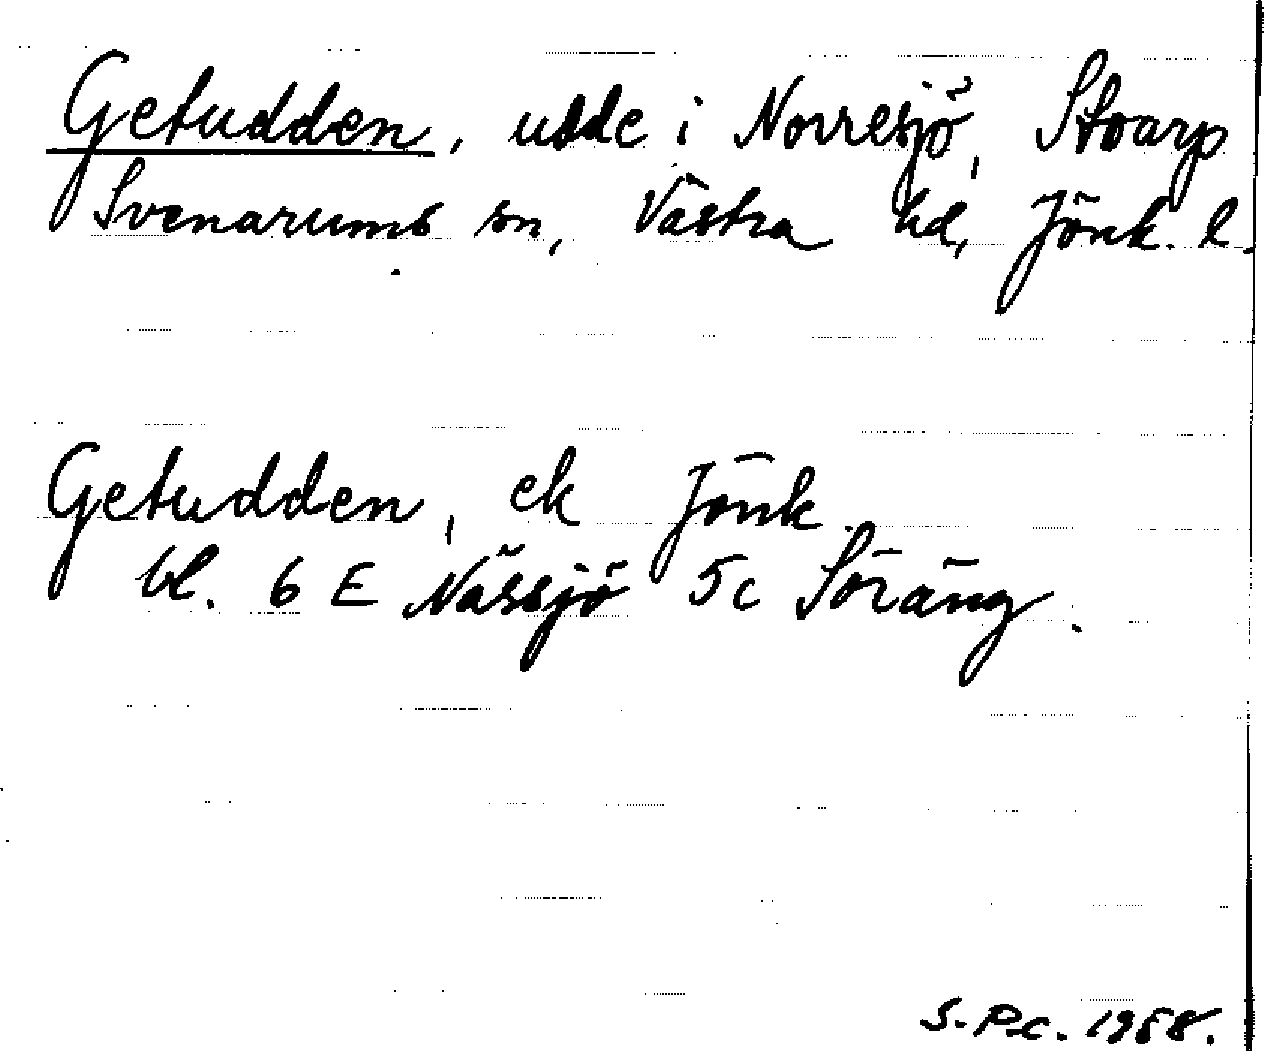 Getudden, udde i Norresjö, Stoarp
Svenarums sn, Västra hd, Jönk. l.
Getudden, ek Jönk.
bl. 6 E Nässjö 5c Söräng.
S.P.C. 1988.